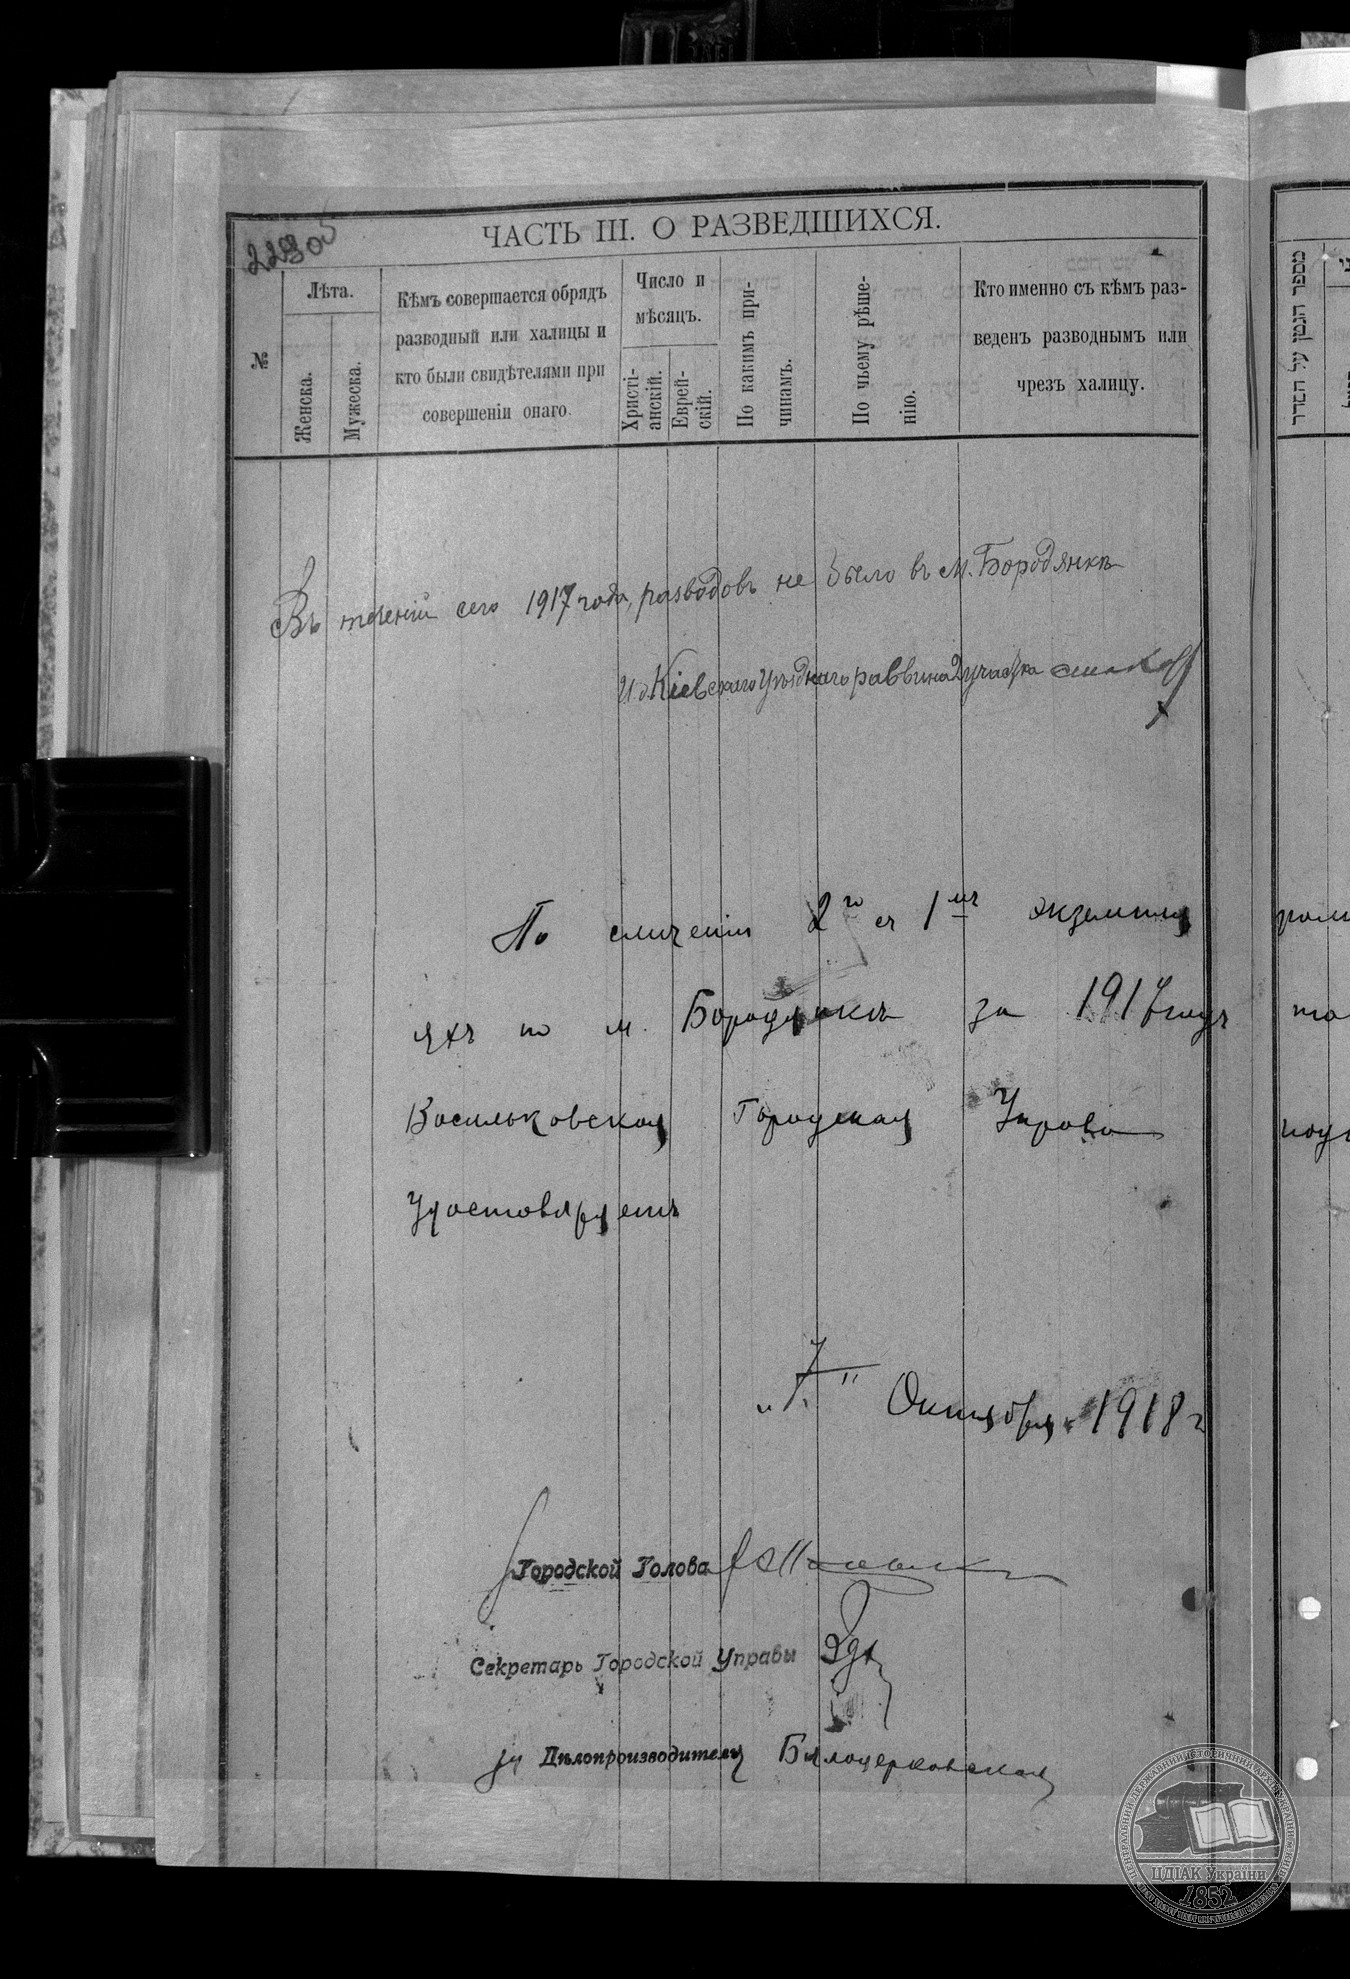 ЧАСТЬ III. О РАЗВЕДШИХСЯ.
№
Лѣта.
Женска.
Мужеска.
Кѣмъ совершается обрядъ
разводный или халицы и
кто были свидѣтелями при
совершеніи онаго.
Число и
мѣсяцъ.
Христі-
анскій.
Еврей-
скій.
По какимъ при-
чинамъ.
По чьему рѣше-
нію.
Кто именно съ кѣмъ раз-
веденъ разводнымъ или
чрезъ халицу.
מספר הנמן על הסדר
Въ теченіи сего 1917 года, разводовъ не было въ м. Бородянкѣ
И.д. Кіевскаго Уѣзднаго раввина 2 участка
По сличеніи 2го съ 1мъ экземпля
яхъ по м. Бородянкѣ за 1917 годъ
Васильковская Городская Управа
Удостовѣряетъ
"7" Октября 1918 г
Городской Голова
Секретарь Городской Управы
за Дѣлопроизводителя Бѣлоцерковская
ЦЕНТРАЛЬНИЙ ДЕРЖАВНИЙ ІСТОРИЧНИЙ АРХІВ УКРАЇНИ
ЦДІАК України
1852